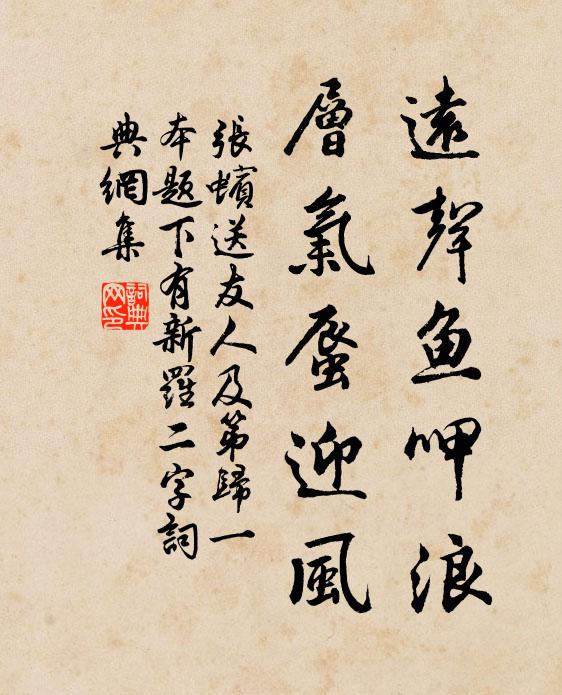 遠聲魚呷浪
層氣蜃迎風
張蠙送友人及第歸一
本題下有新羅二字詞
典網集
詞典网印